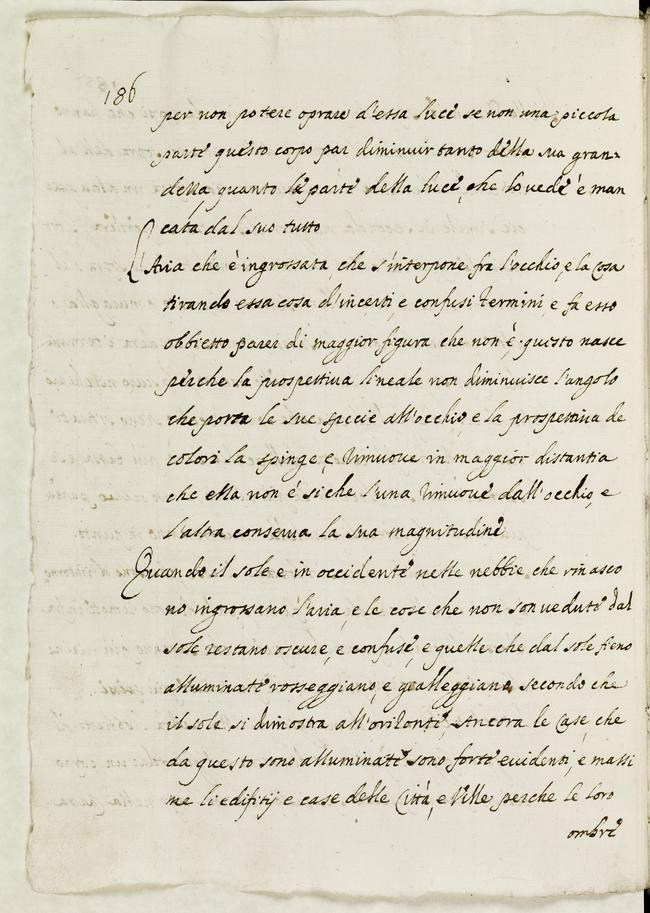 186
per non potere oprare d'essa luce se non una piccola
parte questo corpo par diminuir tanto della sua gran-
della, quanto la parte della luce, che lo vede è man
cata dal suo tutto
L'Aria che è ingrossata, che s'interpone fra l'occhio, e la cosa
tirando essa cosa d'incerti, e confusi termini, e fa esso
obbietto parer di maggior figura che non è, questo nasce
perche la prospettiva lineale non diminuisce l'angolo
che porta le sue specie all'occhio, e la prospettiva de
colori la spinge, e rimuove in maggior distantia
che ella non è, si che l'una rimuove dall'occhio, e
l'altra conserva la sua magnitudine
Quando il sole è in occidente nelle nebbie che rinasco
no ingrossano l'aria, e le cose che non son vedute dal
sole restano oscure, e confuse, e quelle che dal sole fieno
alluminate rosseggiano, e gialleggiano, secondo che
il sole si dimostra all'orizonte, Ancora le case, che
da questo sono alluminate sono forte evidenti, e massi
me li edifitij e case delle Città, e Ville perche le loro
ombre